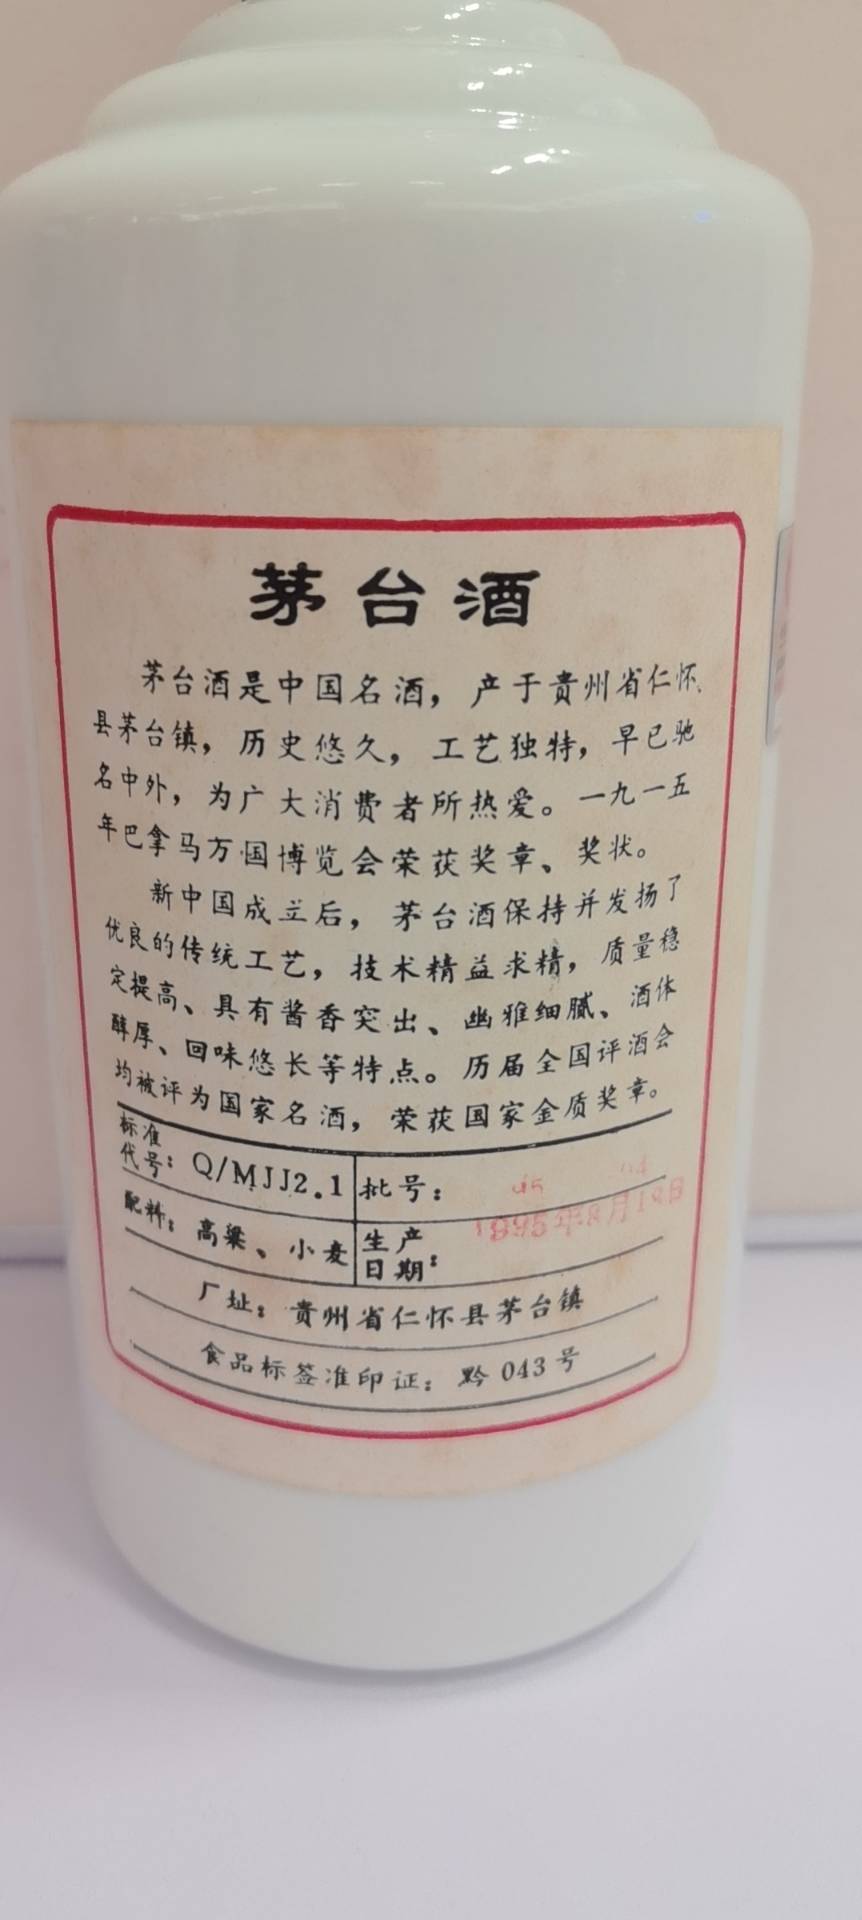 茅台酒
茅台酒是中国名酒，产于贵州省仁怀
县茅台镇，历史悠久，工艺独特，早已驰
名中外，为广大消费者所热爱。一九一五
年巴拿马万国博览会荣获奖章、奖状。
新中国成立后，茅台酒保持并发扬了
优良的传统工艺，技术精益求精，质量稳
定提高、具有酱香突出、幽雅细腻、酒体
醇厚、回味悠长等特点。历届全国评酒会
均被评为国家名酒，荣获国家金质奖章。
标准代号：Q/MJJ2.1 批号：
配料：高粱、小麦 生产日期：1995年8月19日
厂址：贵州省仁怀县茅台镇
食品标签准印证：黔043号